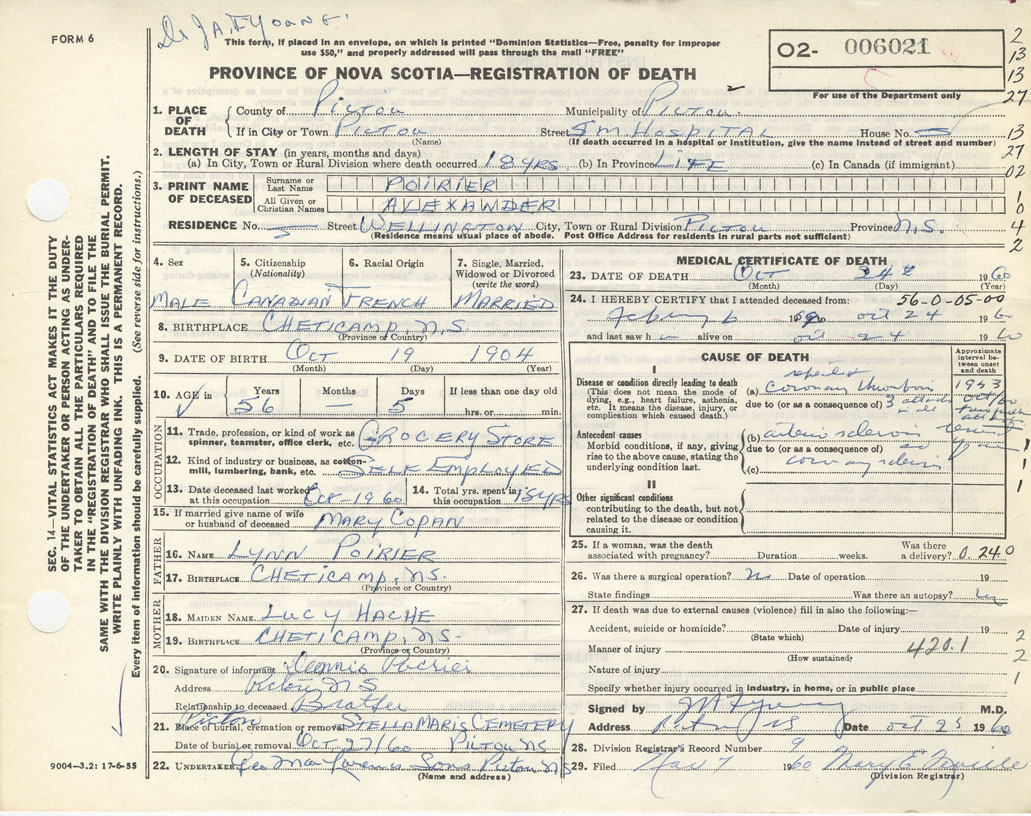 FORM 6
This form, if placed in an envelope, on which is printed "Dominion Statistics—Free, penalty for improper
use $50," and properly addressed will pass through the mail "FREE"
PROVINCE OF NOVA SCOTIA—REGISTRATION OF DEATH
02- 006021
For use of the Department only
2
13
13
27
13
27
02
1
0
4
2
1. PLACE OF DEATH
County of Pictou Municipality of Pictou.
If in City or Town Pictou Street S.M. Hospital House No.
(Name) (If death occurred in a hospital or institution, give the name instead of street and number)
2. LENGTH OF STAY (in years, months and days)
(a) In City, Town or Rural Division where death occurred 18 yrs (b) In Province LIFE (c) In Canada (if immigrant)
3. PRINT NAME OF DECEASED
Surname or Last Name POIRIER
All Given or Christian Names ALEXANDER
RESIDENCE No. Street WELLINGTON City, Town or Rural Division PICTOU Province N.S.
(Residence means usual place of abode. Post Office Address for residents in rural parts not sufficient)
4. Sex
MALE
5. Citizenship (Nationality)
CANADIAN
6. Racial Origin
FRENCH
7. Single, Married, Widowed or Divorced (write the word)
MARRIED
8. BIRTHPLACE CHETICAMP, N.S.
(Province or Country)
9. DATE OF BIRTH Oct 19 1904
(Month) (Day) (Year)
10. AGE in Years Months Days If less than one day old
56 — 5 hrs. or min.
OCCUPATION
11. Trade, profession, or kind of work as spinner, teamster, office clerk, etc. GROCERY STORE
12. Kind of industry or business, as cotton-mill, lumbering, bank, etc. SELF EMPLOYED
13. Date deceased last worked at this occupation Oct - 1960
14. Total yrs. spent in this occupation 18 yrs
15. If married give name of wife or husband of deceased MARY COPAN
FATHER
16. NAME LYNN POIRIER
17. BIRTHPLACE CHETICAMP, N.S.
(Province or Country)
MOTHER
18. MAIDEN NAME LUCY HACHE
19. BIRTHPLACE CHETICAMP, N.S.
(Province or Country)
20. Signature of informant Dennis Poirier
Address Pictou N S
Relationship to deceased Brother
Pictou
21. Place of burial, cremation or removal STELLA MARIS CEMETERY
Date of burial or removal Oct 27/60 Pictou N.S
22. UNDERTAKER Sons Pictou NS
(Name and address)
9004—3.2: 17-6-55
MEDICAL CERTIFICATE OF DEATH
23. DATE OF DEATH Oct 24th 1960
(Month) (Day) (Year)
24. I HEREBY CERTIFY that I attended deceased from: 56-0-05-00
19 to Oct 24 1960
and last saw h alive on Oct 24 1960
CAUSE OF DEATH
Approximate interval between onset and death
I
Disease or condition directly leading to death
(This does not mean the mode of dying, e.g., heart failure, asthenia, etc. It means the disease, injury, or complication which caused death.)
(a) repeated coronary thrombosis
due to (or as a consequence of) 3 attacks in all
Antecedent causes
Morbid conditions, if any, giving rise to the above cause, stating the underlying condition last.
(b) arterio sclerosis
due to (or as a consequence of)
(c) coronary sclerosis
II
Other significant conditions
contributing to the death, but not related to the disease or condition causing it.
1
1
1
25. If a woman, was the death associated with pregnancy? Duration weeks. Was there a delivery? 0.240
26. Was there a surgical operation? no Date of operation 19
State findings Was there an autopsy?
27. If death was due to external causes (violence) fill in also the following:—
Accident, suicide or homicide? Date of injury 19
(State which)
Manner of injury 420.1
(How sustained)
Nature of injury
Specify whether injury occurred in industry, in home, or in public place
2
2
1
Signed by M.D.
Address Pictou NS Date Oct 25 1960
28. Division Registrar's Record Number 9
29. Filed Nov 7 1960 Mary E
(Division Registrar)
SEC. 14—VITAL STATISTICS ACT MAKES IT THE DUTY
OF THE UNDERTAKER OR PERSON ACTING AS UNDER-
TAKER TO OBTAIN ALL THE PARTICULARS REQUIRED
IN THE "REGISTRATION OF DEATH" AND TO FILE THE
SAME WITH THE DIVISION REGISTRAR WHO SHALL ISSUE THE BURIAL PERMIT.
WRITE PLAINLY WITH UNFADING INK. THIS IS A PERMANENT RECORD.
Every item of information should be carefully supplied. (See reverse side for instructions.)